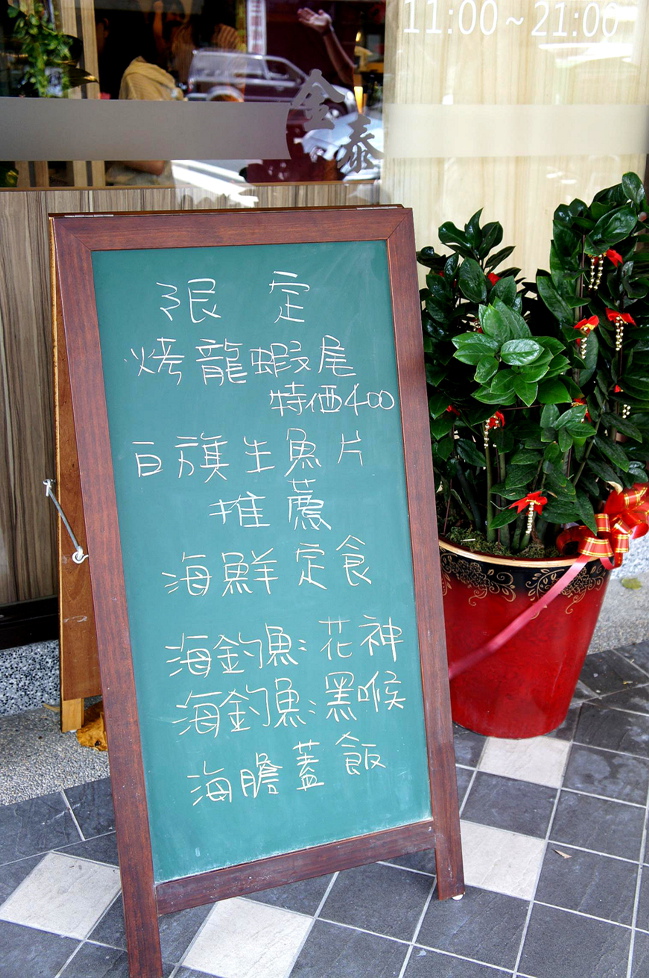 11:00~21:00
金泰
限定
烤龍蝦尾
特価400
白旗生魚片
推薦
海鮮定食
海釣魚:花神
海釣魚:黑喉
海膽蓋飯